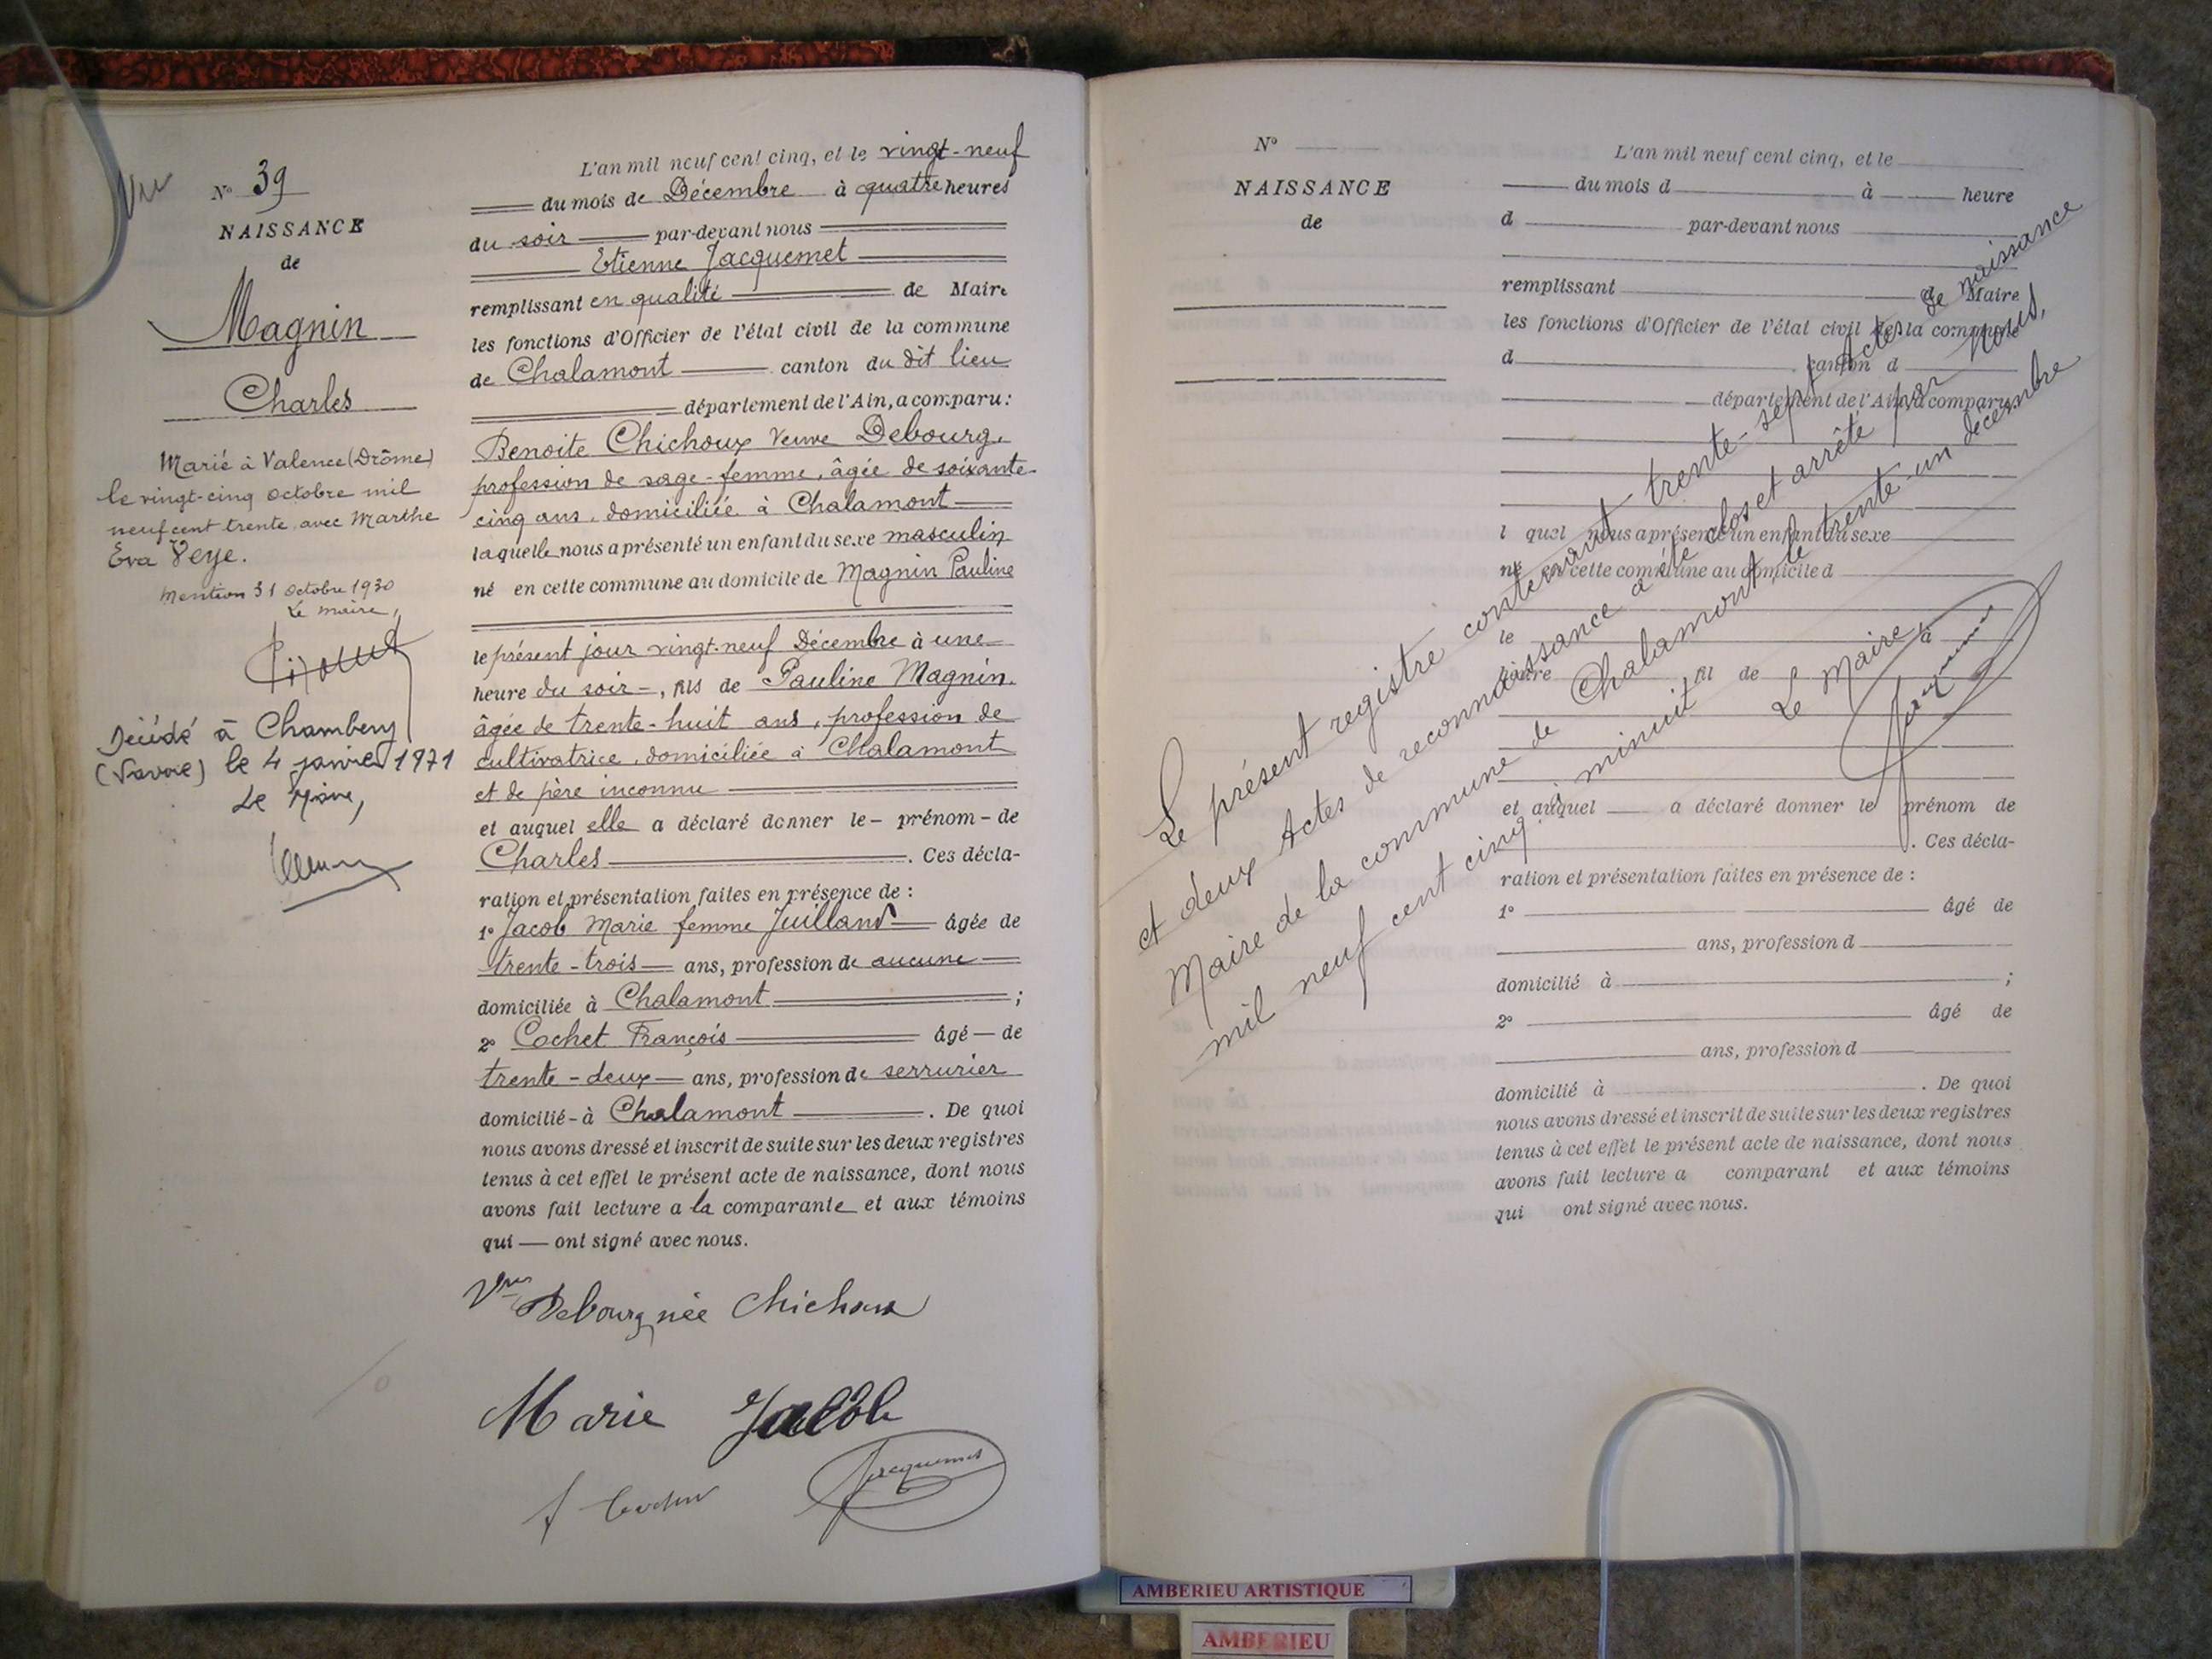 Vu
N° 39
NAISSANCE
de
Magnin
Charles
Marié à Valence (Drôme)
le vingt-cinq octobre mil
neuf cent trente avec Marthe
Eva Veye.
Mention 31 octobre 1930
Le maire,
Décédé à Chambery
(Savoie) le 4 janvier 1971
Le Maire,
L'an mil neuf cent cinq, et le vingt-neuf
du mois de Décembre à quatre heures
du soir par-devant nous
Etienne Jacquemet
remplissant en qualité de Maire
les fonctions d'Officier de l'état civil de la commune
de Chalamont canton du dit lieu
département de l'Ain, a comparu :
Benoite Chichoux Veuve Debourg,
profession de sage-femme, âgée de soixante-
cinq ans, domiciliée à Chalamont
laquelle nous a présenté un enfant du sexe masculin
né en cette commune au domicile de Magnin Pauline
le présent jour vingt-neuf Décembre à une
heure du soir -, fils de Pauline Magnin,
âgée de trente-huit ans, profession de
cultivatrice, domiciliée à Chalamont
et de père inconnu
et auquel elle a déclaré donner le - prénom - de
Charles . Ces décla-
ration et présentation faites en présence de :
1° Jacob Marie femme Juilland âgée de
trente-trois ans, profession de aucune
domiciliée à Chalamont ;
2° Cochet François âgé - de
trente-deux ans, profession de serrurier
domicilié - à Chalamont . De quoi
nous avons dressé et inscrit de suite sur les deux registres
tenus à cet effet le présent acte de naissance, dont nous
avons fait lecture a la comparante et aux témoins
qui ont signé avec nous.
Vve Debourg née Chichoux
Marie Jacob
Jacquemet
N°
NAISSANCE
de
L'an mil neuf cent cinq, et le
du mois d à heure
d par-devant nous
remplissant de Maire
les fonctions d'Officier de l'état civil de la commune
d canton d
département de l'Ain, a comparu :
l quel nous a présenté un enfant du sexe
né en cette commune au domicile d
le à
heure fil de
et auquel a déclaré donner le prénom de
. Ces décla-
ration et présentation faites en présence de :
1° âgé de
ans, profession d
domicilié à ;
2° âgé de
ans, profession d
domicilié à . De quoi
nous avons dressé et inscrit de suite sur les deux registres
tenus à cet effet le présent acte de naissance, dont nous
avons fait lecture a comparant et aux témoins
qui ont signé avec nous.
Le présent registre contenant trente-sept Actes de naissance
et deux Actes de reconnaissance a été clos et arrêté par Nous,
Maire de la commune de Chalamont le trente-un décembre
mil neuf cent cinq à minuit
Le Maire
Jacquemet
AMBERIEU ARTISTIQUE
AMBERIEU